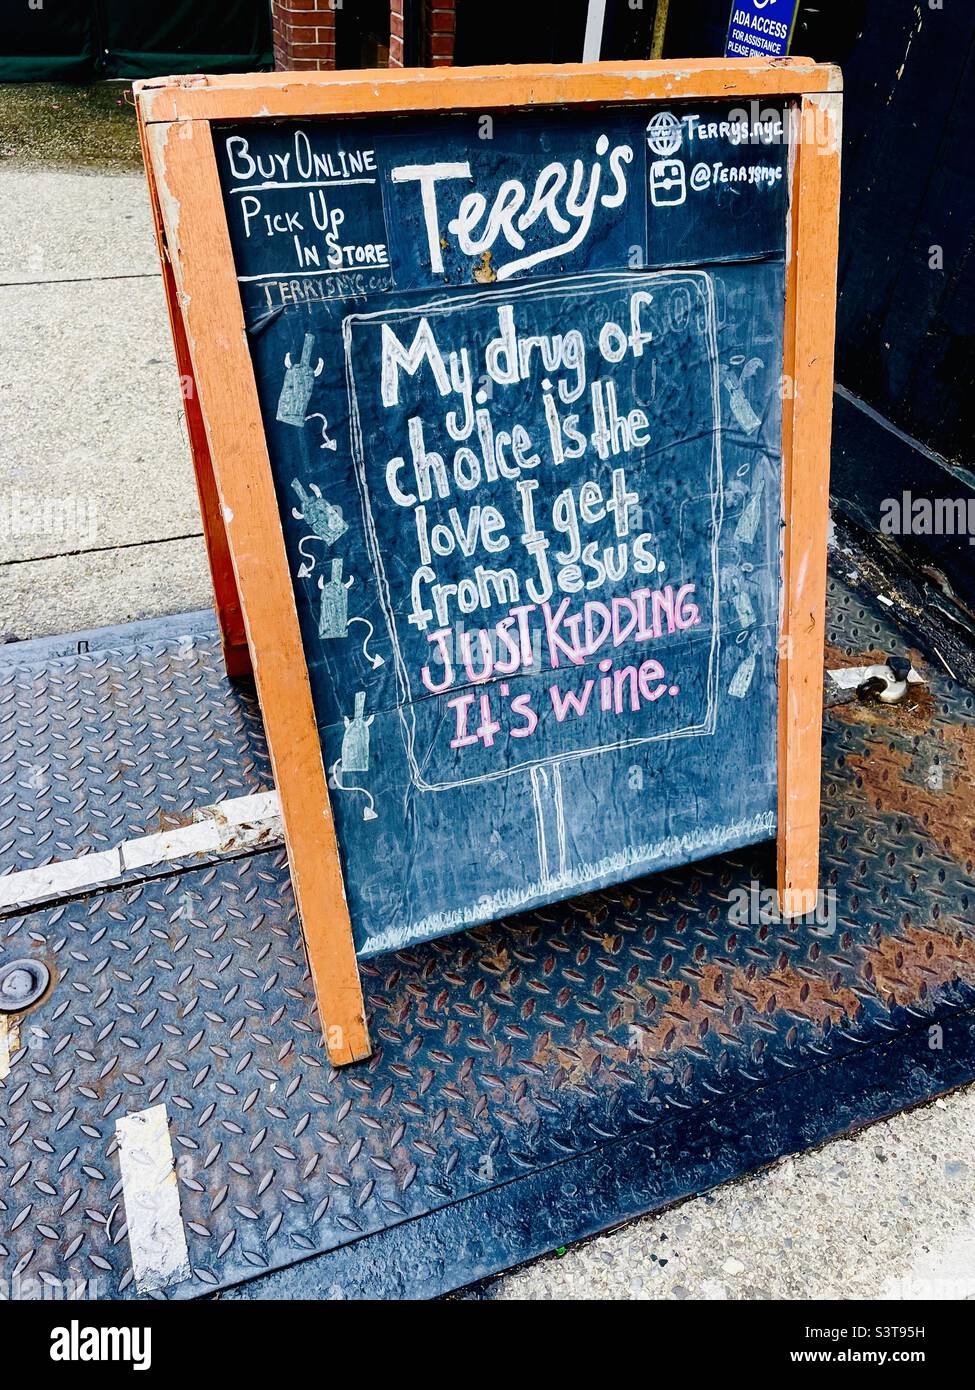 ADA ACCESS
FOR ASSISTANCE
BUY ONLINE
PICK UP
IN STORE
TERRYSNYC.com
TERRY'S
TERRYS.NYC
@TERRYSNYC
My drug of
choice is the
love I get
from Jesus.
JUST KIDDING.
It's wine.
alamy
Image ID: S3T95H
www.alamy.com